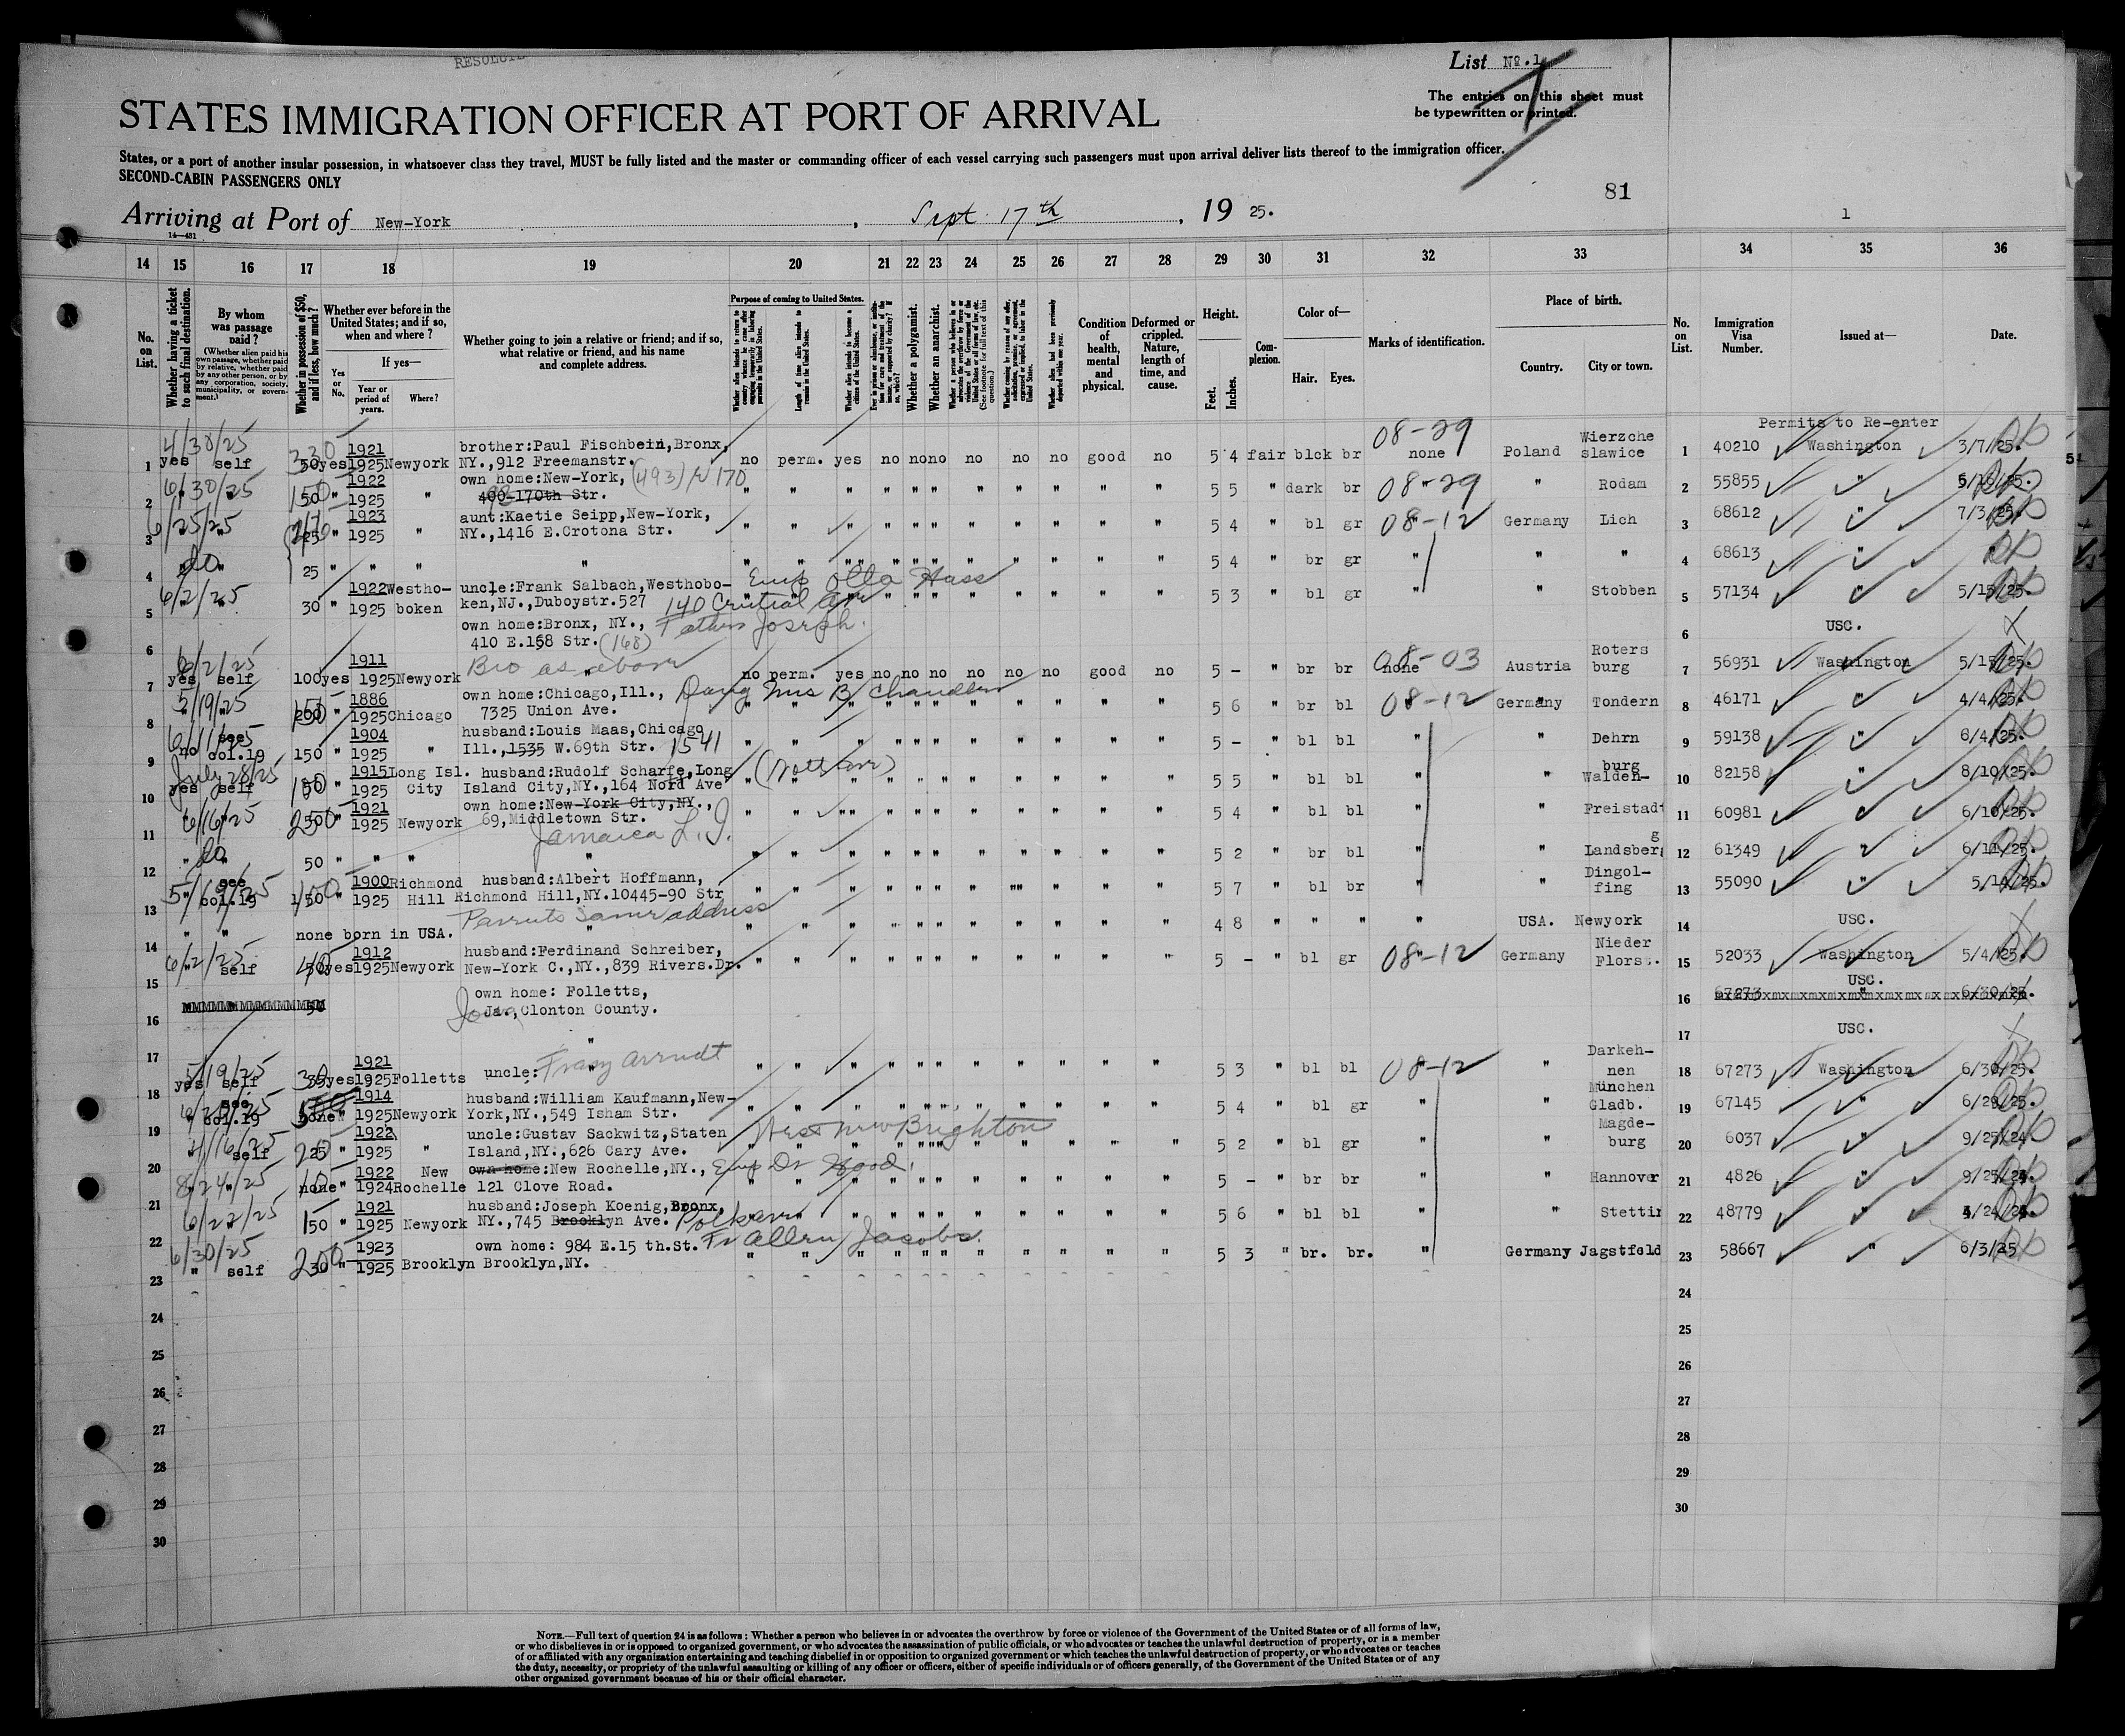 RESOLUTE
List No. 1
The entries on this sheet must
be typewritten or printed.
STATES IMMIGRATION OFFICER AT PORT OF ARRIVAL
States, or a port of another insular possession, in whatsoever class they travel, MUST be fully listed and the master or commanding officer of each vessel carrying such passengers must upon arrival deliver lists thereof to the immigration officer.
SECOND-CABIN PASSENGERS ONLY
81
Arriving at Port of New-York, Sept 17th, 1925.
1
14—431
14 15 16 17 18 19 20 21 22 23 24 25 26 27 28 29 30 31 32 33 34 35 36
No. on List.
Whether having a ticket to such final destination.
By whom was passage paid?
(Whether alien paid his own passage, whether paid by relative, whether paid by any other person, or by any corporation, society, municipality, or government.)
Whether in possession of $50, and if less, how much?
Whether ever before in the United States; and if so, when and where?
If yes—
Yes or No.
Year or period of years.
Where?
Whether going to join a relative or friend; and if so, what relative or friend, and his name and complete address.
Purpose of coming to United States.
Length of time alien intends to remain in the United States.
Whether alien intends to become a citizen of the United States.
Whether a polygamist.
Whether an anarchist.
Condition of health, mental and physical.
Deformed or crippled. Nature, length of time, and cause.
Height.
Feet.
Inches.
Complexion.
Color of—
Hair. Eyes.
Marks of identification.
Place of birth.
Country.
City or town.
No. on List.
Immigration Visa Number.
Issued at—
Date.
Permits to Re-enter
4/30/25
1 yes self 50 yes 1921 1925 Newyork brother:Paul Fischbein,Bronx, NY.,912 Freemanstr. no perm. yes no no no no no no good no 5 4 fair blck br 08-29 none Poland Wierzche slawice 1 40210 Washington 3/7/25.
6/30/25
2 " " 50 " 1922 1925 " own home:New-York, 400-170th Str. (493) W 170 " " " " " " " " " " " 5 5 " dark br 08-29 " Rodam 2 55855 "
6/25/25
3 " " 25 " 1923 1925 " aunt:Kaetie Seipp,New-York, NY.,1416 E.Crotona Str. " " " " " " " " " " " 5 4 " bl gr 08-12 Germany Lich 3 68612 " 7/3/25.
do
4 " " 25 " " " " " " " " " " " " " " " " 5 4 " br gr " " " 4 68613 " "
6/2/25
5 " " 30 " 1922 1925 Westhoboken uncle:Frank Salbach,Westhobo- ken,NJ.,Duboystr.527 Emp Otto Hass 140 Central Ave " " " " " " " " " " " 5 3 " bl gr " " Stobben 5 57134 " 5/15/25.
6 own home:Bronx, NY., 410 E.158 Str. (168) Father Joseph. 6 USC.
6/2/25
7 yes self 100 yes 1911 1925 Newyork " Bro as above no perm. yes no no no no no no good no 5 - " br br 08-03 none Austria Roters burg 7 56931 Washington 5/15/25.
5/19/25
8 " " 200 " 1886 1925 Chicago own home:Chicago,Ill., 7325 Union Ave. Daug Mrs B Chandler " " " " " " " " " " " 5 6 " br bl 08-12 Germany Tondern 8 46171 " 4/4/25.
6/11/25
9 no see col.19 150 " 1904 1925 " husband:Louis Maas,Chicago Ill.,1535 W.69th Str. 1541 " " " " " " " " " " " 5 - " bl bl " " Dehrn 9 59138 " 6/4/25.
July 28/25
10 yes self 50 " 1915 1925 Long Isl. City husband:Rudolf Scharfe,Long Island City,NY.,164 Nord Ave (Nott Ave) " " " " " " " " " " " 5 5 " bl bl " " Walden- burg 10 82158 " 8/10/25.
6/16/25
11 " " 50 " 1921 1925 Newyork own home:New-York City,NY., 69,Middletown Str. Jamaica L.I. " " " " " " " " " " " 5 4 " bl bl " " Freistadt 11 60981 " 6/10/25.
do
12 " " 50 " " " " " " " " " " " " " " " 5 2 " br bl " " Landsberg 12 61349 " 6/11/25.
5/6/25
13 " see col.19 50 " 1900 1925 Richmond Hill husband:Albert Hoffmann, Richmond Hill,NY.10445-90 Str " " " " " " " " " " " 5 7 " bl br " " Dingol- fing 13 55090 "
14 " " none born in USA. " Parents same address " " " " " " " " " " " 4 8 " " " " USA. Newyork 14 USC.
6/2/25
15 " self 50 yes 1912 1925 Newyork husband:Ferdinand Schreiber, New-York C.,NY.,839 Rivers.Dr. " " " " " " " " " " " 5 - " bl gr 08-12 Germany Nieder Florst. 15 52033 Washington 5/4/25.
16 50 own home: Folletts, Ja.,Clonton County. Iowa 16 67273 " 6/30/25. USC.
17 " 17 USC.
5/19/25
18 yes self 35 yes 1921 1925 Folletts uncle: " Franz Arrndt " " " " " " " " " " " 5 3 " bl bl 08-12 " Darkeh- nen 18 67273 Washington 6/30/25.
19 " see col.19 none " 1914 1925 Newyork husband:William Kaufmann,New- York,NY.,549 Isham Str. " " " " " " " " " " " 5 4 " bl gr " " München Gladb. 19 67145 " 6/29/25.
4/16/25
20 " self 25 " 1922 1925 " uncle:Gustav Sackwitz,Staten Island,NY.,626 Cary Ave. West New Brighton " " " " " " " " " " " 5 2 " bl gr " " Magde- burg 20 6037 " 9/25/24.
8/24/25
21 " " none " 1922 1924 New Rochelle own home:New Rochelle,NY., 121 Clove Road. Emp Dr Wood. " " " " " " " " " " " 5 - " br br " " Hannover 21 4826 " 9/25/24.
6/22/25
22 " " 50 " 1921 1925 Newyork husband:Joseph Koenig,Bronx, NY.,745 Brooklyn Ave. " " " " " " " " " " " 5 6 " bl bl " " Stettin 22 48779 "
6/30/25
23 " self 30 " 1923 1925 Brooklyn own home: 984 E.15 th.St. Brooklyn,NY. Fr Allen Jacobs. " " " " " " " " " " " 5 3 " br. br. " Germany Jagstfeld 23 58667 " 6/3/25
24 24
25 25
26 26
27 27
28 28
29 29
30 30
NOTE.—Full text of question 24 is as follows: Whether a person who believes in or advocates the overthrow by force or violence of the Government of the United States or of all forms of law,
or who disbelieves in or is opposed to organized government, or who advocates the assassination of public officials, or who advocates or teaches the unlawful destruction of property, or is a member
of or affiliated with any organization entertaining and teaching disbelief in or opposition to organized government or which teaches the unlawful destruction of property, or who advocates or teaches
the duty, necessity, or propriety of the unlawful assaulting or killing of any officer or officers, either of specific individuals or of officers generally, of the Government of the United States or of any
other organized government because of his or their official character.